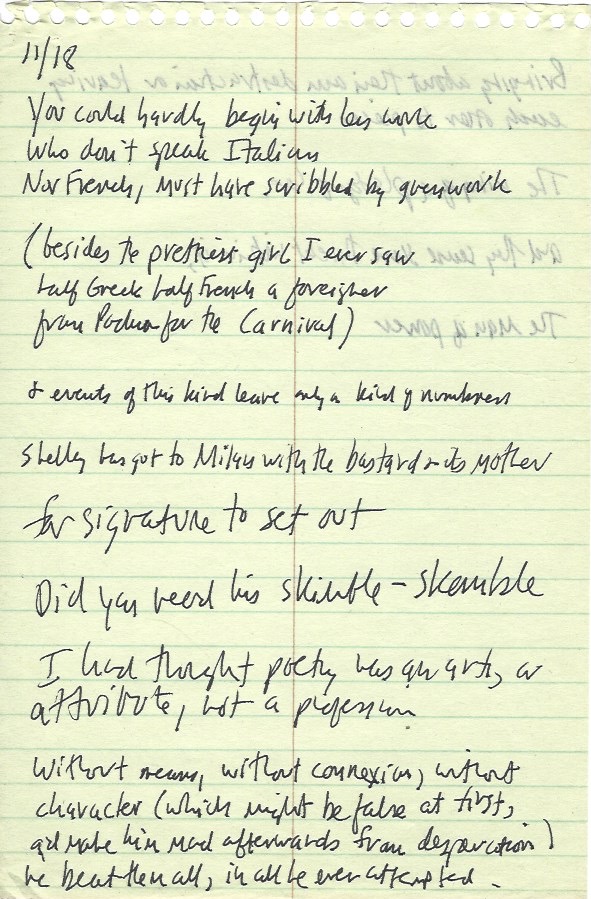 11/18
You could hardly begin with less work
Who don't speak Italian
Nor French, must have scribbled by guesswork
(besides the prettiest girl I ever saw
half Greek half French a foreigner
from Padua for the Carnival)
& events of this kind leave only a kind of numbness
Shelley has got to Milan with the bastard & its mother
for signature to set out
Did you read his skimble-skamble
I had thought poetry was an art, or
attribute, not a profession
Without means, without connexion, without
character (which might be false at first,
and make him mad afterwards from desperation)
he beat them all, in all he ever attempted.